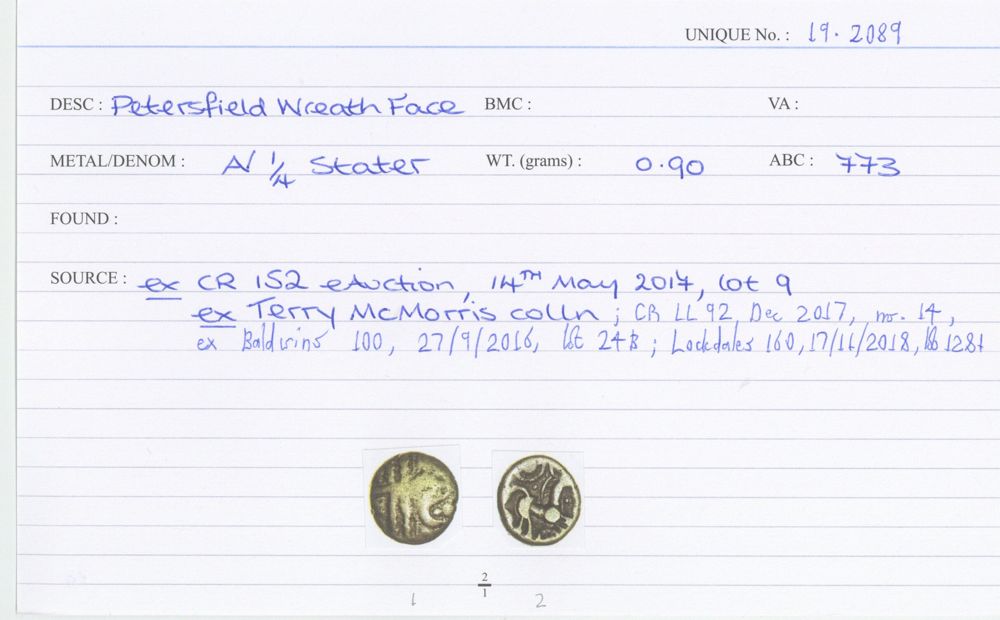 UNIQUE No. : 19.2089
DESC : Petersfield Wreath Face BMC : VA :
METAL/DENOM : A/ 1/4 Stater WT. (grams) : 0.90 ABC : 773
FOUND :
SOURCE : ex CR 152 eAuction, 14TH May 2017, lot 9
ex Terry McMorris colln ; CR LL 92, Dec 2017, no. 14,
ex Baldwins 100, 27/9/2016, lot ; Lockdales 160, 17/11/2018, lot
2/1
1 2